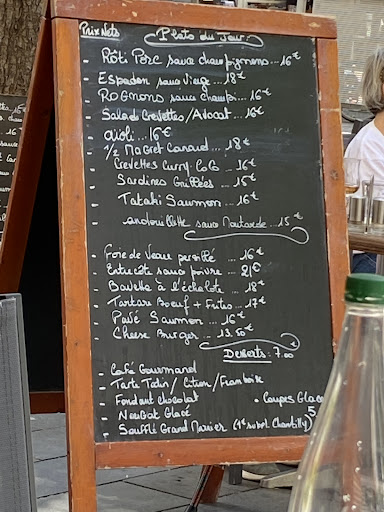 Prix Nets
Plats du Jour
- Rôti Porc sauce champignons... 16€
- Espadon sauce Vierge - 18€
- Rognons sauce champi... 16€
- Salade Crevettes/Avocat.. 16€
- aïoli.. 16€
- 1/2 Magret Canard... 18€
- Crevettes Curry-CoCo - 16€
- Sardines Grillées ... 15€
- Tataki Saumon ... 16€
- andouillette sauce Moutarde.. 15€
- Foie de Veau persillé ... 16€
- Entrecôte sauce poivre .. 21€
- Bavette à l'échalote .. 18€
- Tartare Boeuf + Frites.. 17€
- Pavé Saumon ... 16€
- Cheese Burger .. 13.50€
Desserts: 7.00
- Café Gourmand
- Tarte Tatin / Citron / Framboise
- Fondant chocolat
• Coupes Glace
- Nougat Glacé
5
- Soufflé Grand Marnier (1€ suppl. Chantilly)